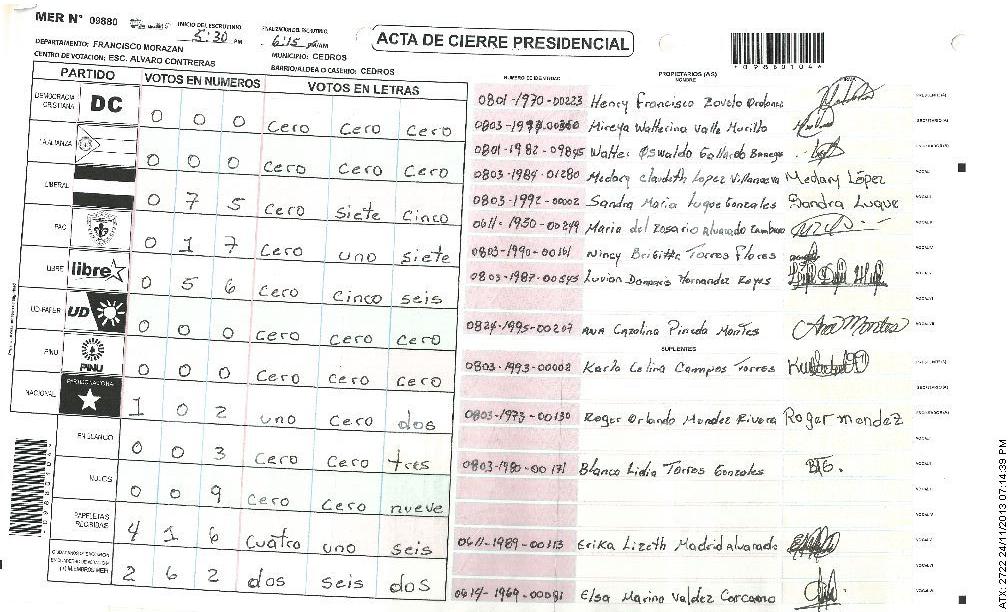 MER N° 09880
INICIO DEL ESCRUTINIO
5:30 PM
FINALIZACION DEL ESCRUTINIO
6:15 PM
ACTA DE CIERRE PRESIDENCIAL
DEPARTAMENTO: FRANCISCO MORAZAN
MUNICIPIO: CEDROS
CENTRO DE VOTACION: ESC. ALVARO CONTRERAS
BARRIO/ALDEA O CASERIO: CEDROS
PARTIDO VOTOS EN NUMEROS VOTOS EN LETRAS
DEMOCRACIA CRISTIANA DC 0 0 0 Cero Cero Cero
LA ALIANZA 0 0 0 Cero Cero Cero
LIBERAL 0 7 5 Cero siete cinco
PAC 0 1 7 Cero uno siete
LIBRE libre 0 5 6 Cero Cinco seis
UD-FAPER UD 0 0 0 Cero Cero Cero
PINU PINU 0 0 0 Cero Cero Cero
NACIONAL PARTIDO NACIONAL 1 0 2 uno Cero dos
EN BLANCO 0 0 3 Cero Cero tres
NULOS 0 0 9 Cero Cero nueve
PAPELETAS RECIBIDAS 4 1 6 Cuatro uno seis
2 6 2 dos seis dos
NUMERO DE IDENTIDAD
PROPIETARIOS (AS)
NOMBRE
0801-1970-00223 Henry Francisco Zovelo Ordonez
Mireya Walterina Valle Murillo
0801-1982-09845 Walter Oswaldo Gallardo
0803-1984-01280 Medary Claudeth Lopez Villanueva Medary López
0803-1992-00002 Sandra Maria Luque Gonzales Sandra Luque
0611-1950-00249 Maria del Rosario Alvarado Zambrano
0803-1990-00161 Nincy Brigitte Torres Flores
0803-1987-00545 Luvian Damaris Hernandez Reyes
0824-1995-00207 Ana Carolina Pineda Montes Ana Montes
SUPLENTES
0803-1993-00002 Karla Celina Campos Torres
0803-1973-00130 Roger Orlando Mendez Rivera Roger mendez
0803-1980-00171 Blanca Lidia Torres Gonzales
0611-1989-00113 Erika Lizeth Madrid Alvarado
0614-1969-00081 Elsa Marina Valdez Carcamo
2722 24/11/2013 07:14:39 PM